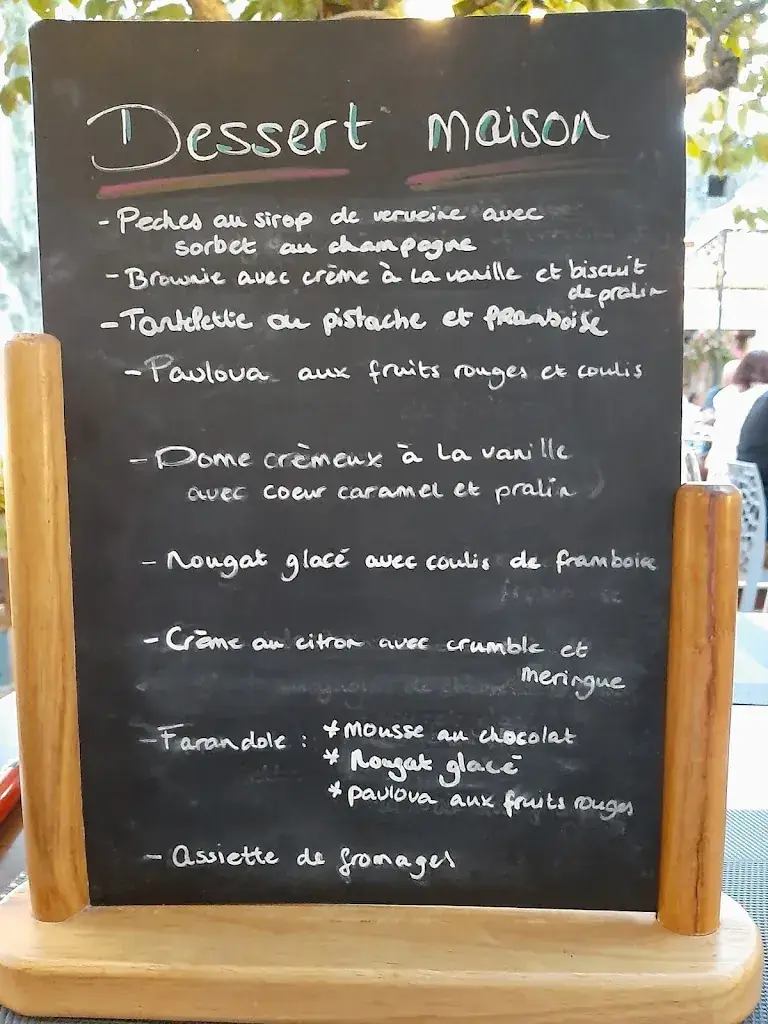 Dessert maison
- Peches au sirop de verveine avec
sorbet au champagne
- Brownie avec crème à la vanille et biscuit
de pralin
- Tartelette au pistache et framboise
- Pavlova aux fruits rouges et coulis
- Dome crèmeux à la vanille
avec coeur caramel et pralin
- Nougat glacé avec coulis de framboise
- Crème au citron avec crumble et
meringue
- Farandole : * mousse au chocolat
* Nougat glacé
* pavlova aux fruits rouges
- Assiette de fromages